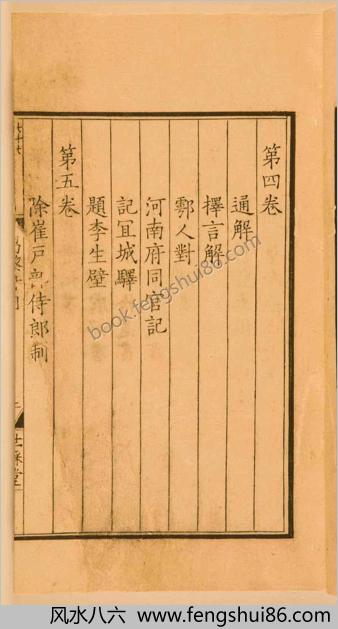 第四卷
通解
擇言解
鄠人對
河南府同官記
記冝城驛
題李生壁
第五卷
除崔戸部侍郎制
世綵堂
book.fengshui86.com
风水八六 www.fengshui86.com